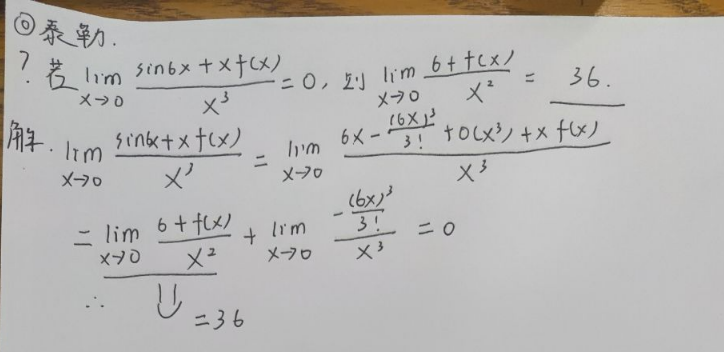 ◎泰勒.
? 若 lim x→0 (sin6x + xf(x))/x³ = 0, 则 lim x→0 (6+f(x))/x² = 36.
解. lim x→0 (sin6x + xf(x))/x³ = lim x→0 (6x - (6x)³/3! + o(x³) + xf(x))/x³
= lim x→0 (6+f(x))/x² + lim x→0 (-(6x)³/3!)/x³ = 0
∴ ⇓ = 36